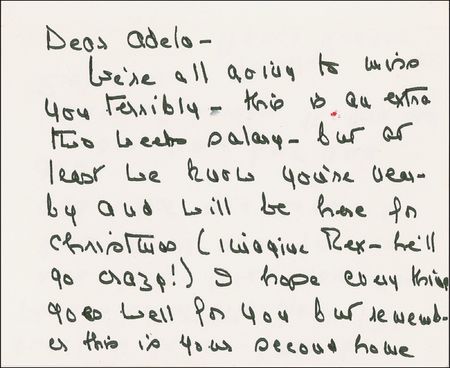 Dear Adela-
We're all going to miss
you terribly- this is an extra
two weeks salary- but at
least we know you're near-
by and will be here for
Christmas (imagine Rex- he'll
go crazy!) I hope everything
goes well for you but rememb-
er this is your second home